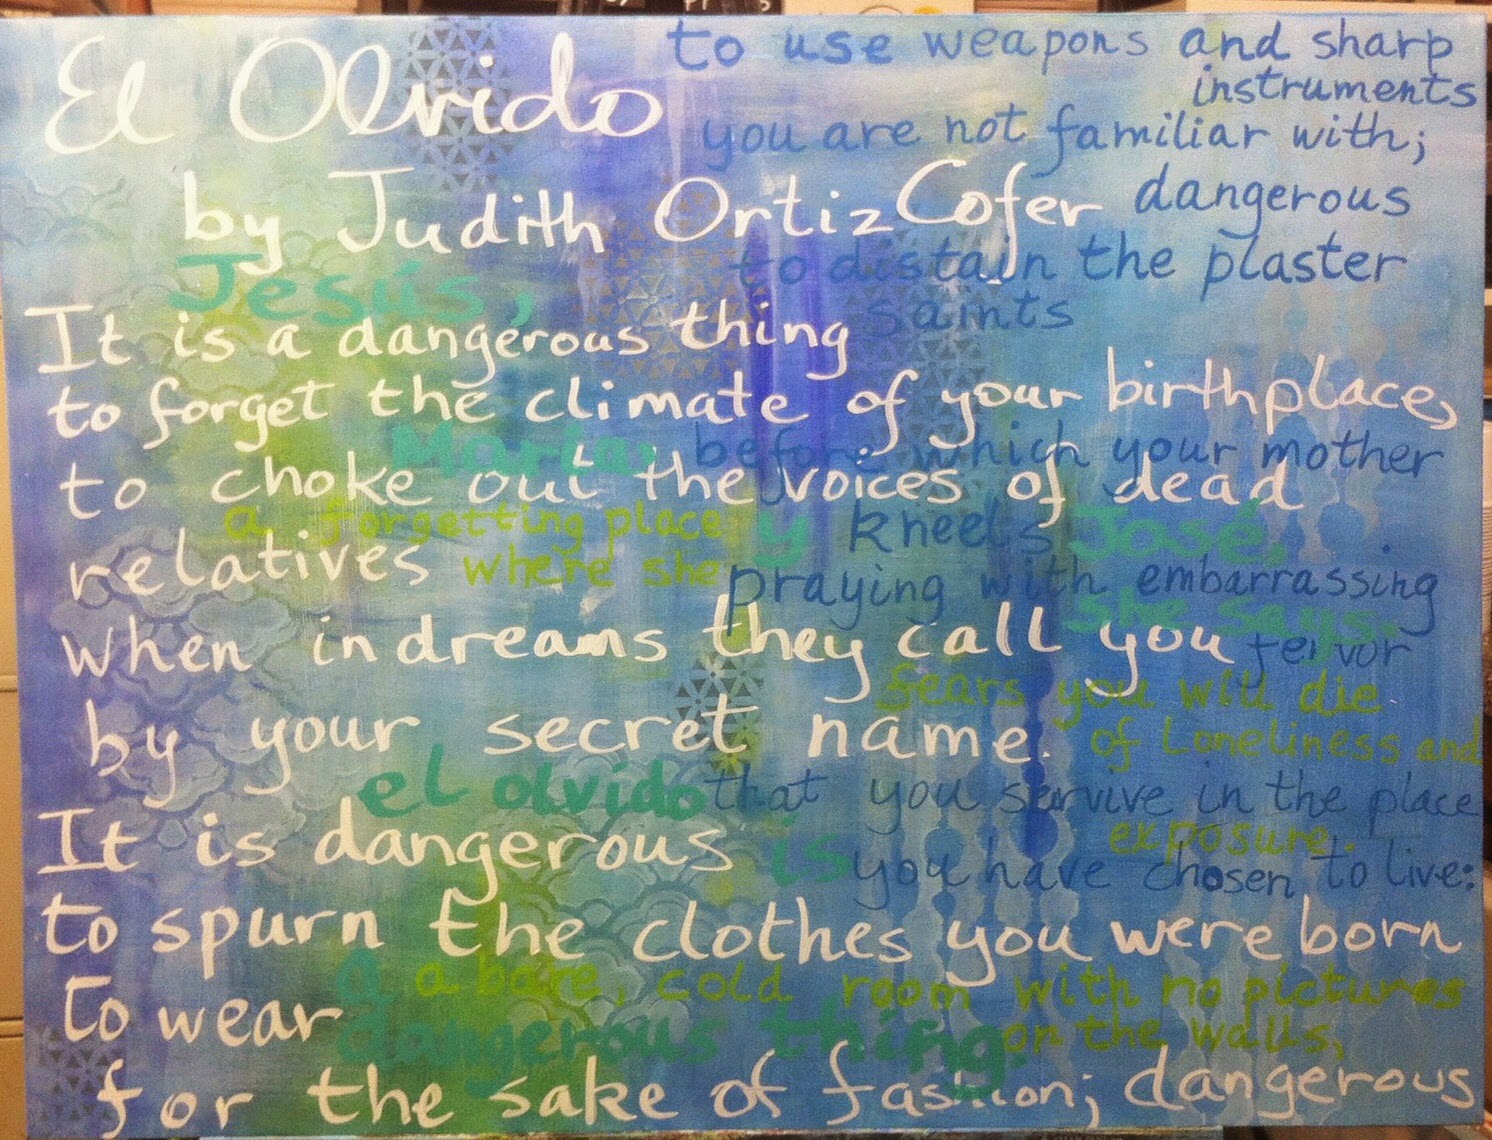 El Olvido
by Judith Ortiz Cofer
It is a dangerous thing
to forget the climate of your birthplace,
to choke out the voices of dead
relatives
when in dreams they call you
by your secret name.
It is dangerous
to spurn the clothes you were born
to wear
for the sake of fashion; dangerous
to use weapons and sharp
instruments
you are not familiar with;
dangerous
to distain the plaster
saints
before which your mother
kneels
praying with embarrassing
fervor
that you survive in the place
you have chosen to live:
a bare, cold room with no pictures
on the walls,
a forgetting place
where she
fears you will die
of Loneliness and
exposure.
Jesús,
María,
y José,
she says,
el olvido
is
a
dangerous thing.